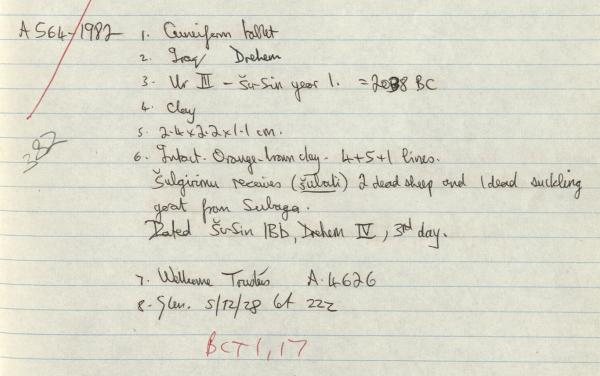 A 564-1982 1. Cuneiform tablet
2. Iraq Drehem
3. Ur III - Šu-Sin year 1. = 2038 BC
4. Clay
5. 2.4x2.2x1.1 cm.
382
6. Intact. Orange-brown clay. 4+5+1 lines.
Šulgirimu receives (šubati) 2 dead sheep and 1 dead suckling
goat from Subaga.
Dated Šu-Sin 1Bb, Drehem IV, 3rd day.
7. Wellcome Trustees A.4626
8. Glen. 5/12/28 lot 222
BCT 1, 17